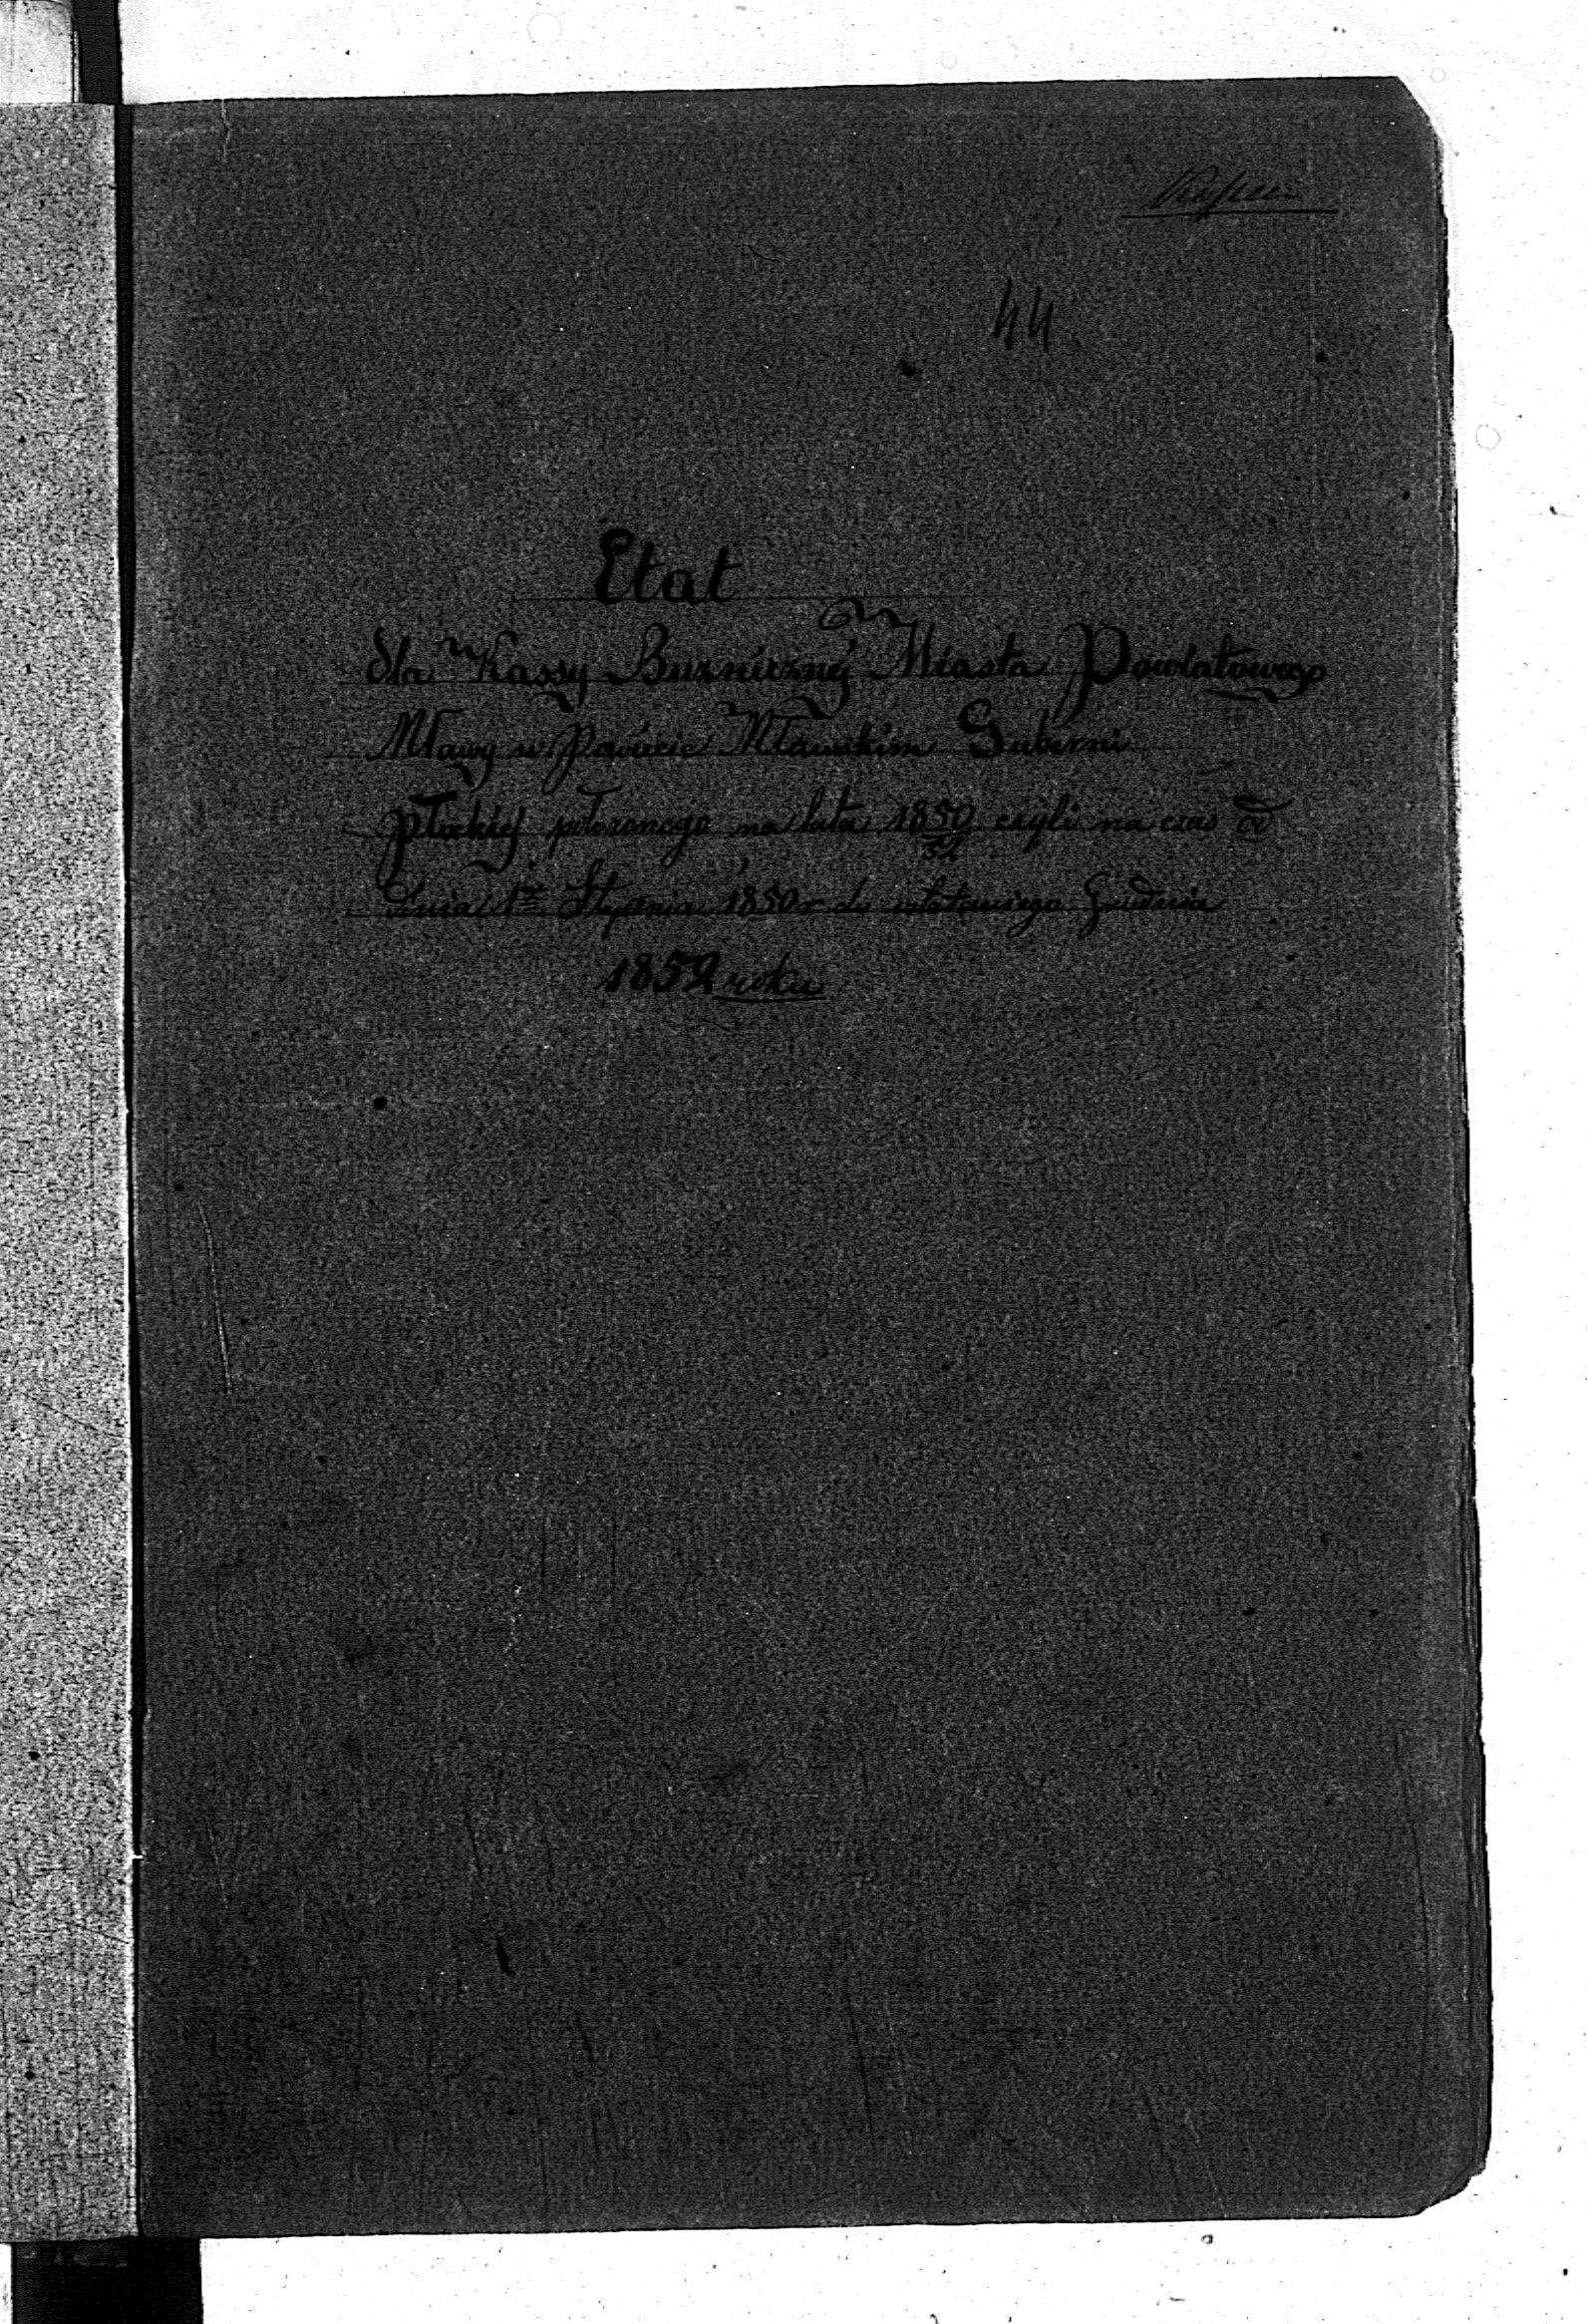 44
Etat
dla Kassy Buzniczny Miasta Powiatowego
Mławy w Powiecie Mławskim Guberni
Płockiej położonego na lata 1850/52 czyli na czas od
Dnia 1go Stycznia 1850 r do ostatniego Grudnia
1852 roku